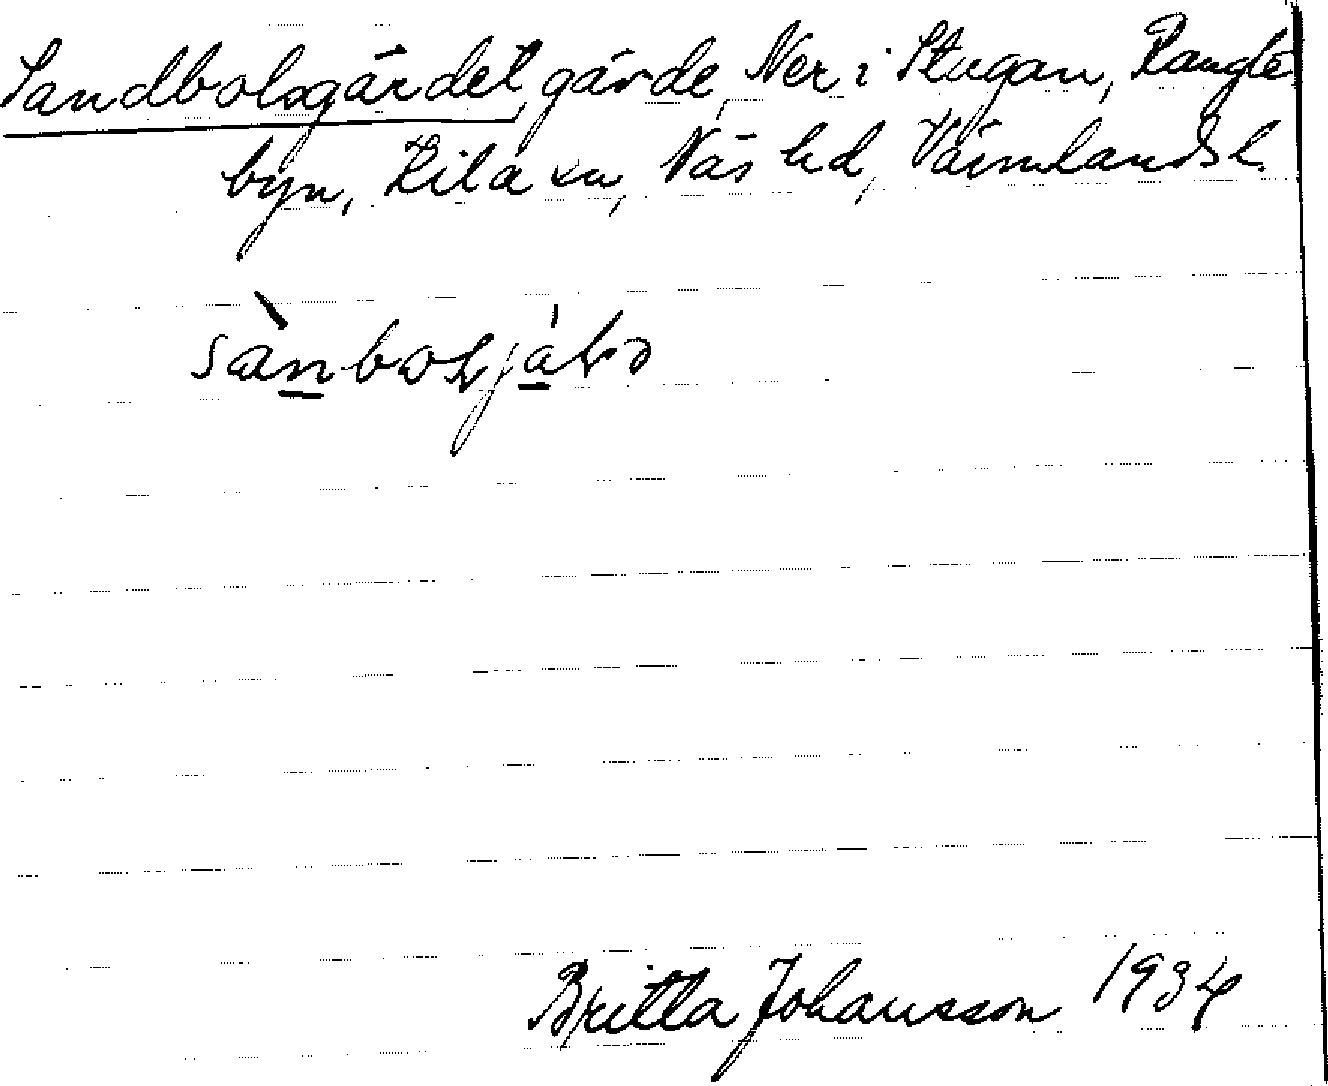 Sandbolsgärdet, gärde, Ner i Stugan, Rangle
byn, Kila sn, Näs hd, Värmlands l.
Britta Johansson 1934